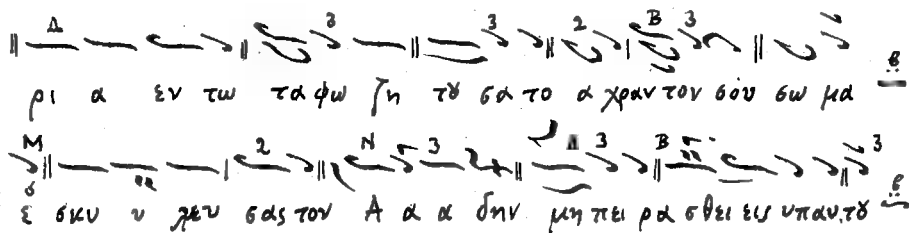 ρι α εν τω ταφω ζη τȣ σα το α χραν τον σου σω μα
ε σκυ υ λευ σας τον Α α α δην μη πει ρα σθει εις υπ αυ τȣ